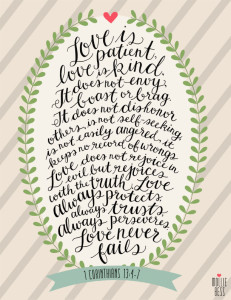 Love is
patient,
love is kind.
It does not envy,
or boast or brag.
It does not dishonor
others, is not self-seeking,
is not easily angered, it
keeps no record of wrongs.
Love does not rejoice in
evil but rejoices
with the truth. Love
always protects,
always trusts,
always perseveres.
Love never
fails
1 CORINTHIANS 13:4-7
MOLLIE
HESS